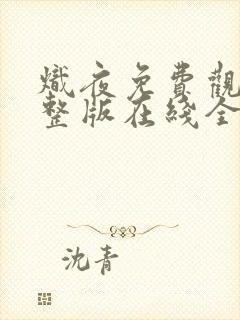 熾夜免費觀
整版在綫全
沈青